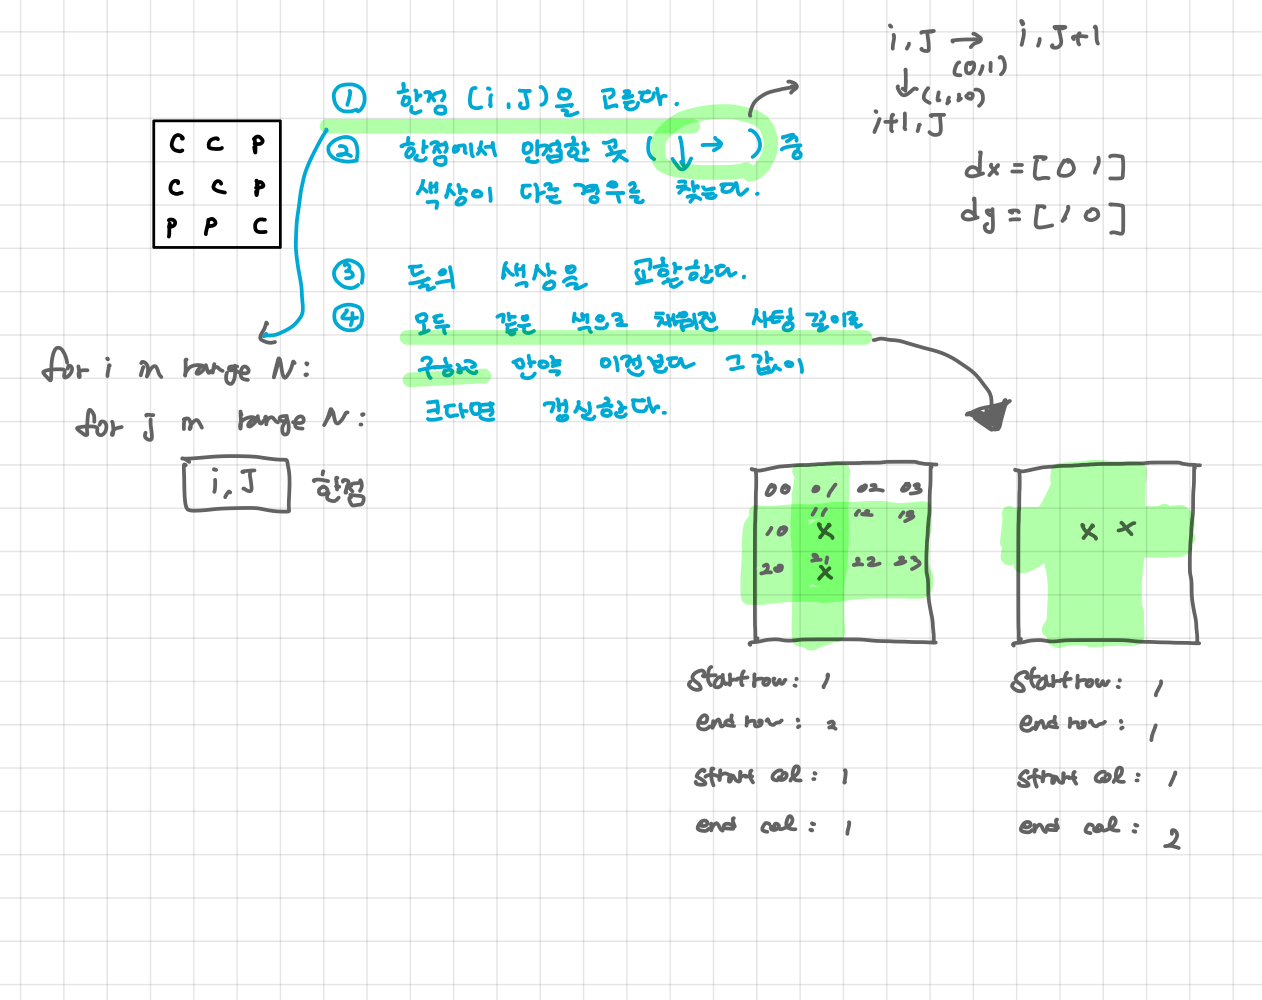 i, J → i, J+1
(0,1)
↓ (1,0)
i+1, J
① 한점 (i, J)을 고른다.
② 한점에서 인접한 곳 ( ↓ → ) 중
색상이 다른 경우를 찾는다.
dx = [0 1]
dy = [1 0]
C C P
C C P
P P C
③ 둘의 색상을 교환한다.
④ 모두 같은 색으로 채워진 사탕 길이를
구하고 만약 이전보다 그 값이
크다면 갱신한다.
for i in range N:
for j in range N:
i, J 한점
00 01 02 03
11 12 13
10 X
20 21 22 23
X
X X
start row: 1
end row: 2
start col: 1
end col: 1
start row: 1
end row: 1
start col: 1
end col: 2